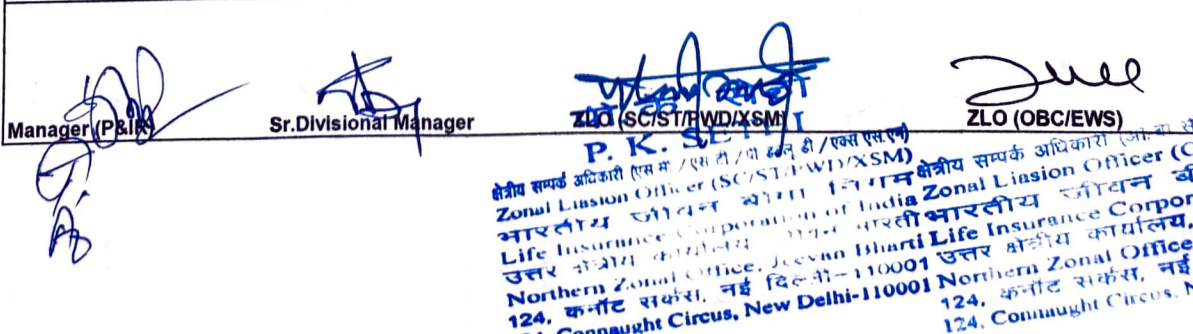 Manager (P&IR)
Sr.Divisional Manager
ZLO (SC/ST/PWD/XSM)
ZLO (OBC/EWS)
P. K. SETHI
क्षेत्रीय सम्पर्क अधिकारी (एस सी / एस टी / पी डब्लू डी / एक्स एस एम)
Zonal Liasion Officer (SC/ST/PWD/XSM)
भारतीय जीवन बीमा निगम
Life Insurance Corporation of India
उत्तर क्षेत्रीय कार्यालय जीवन भारती
Northern Zonal Office, Jeevan Bharti
124, कनॉट सर्कस, नई दिल्ली-110001
Connaught Circus, New Delhi-110001
क्षेत्रीय सम्पर्क अधिकारी
Zonal Liasion Officer
भारतीय जीवन
Life Insurance Corpor
उत्तर क्षेत्रीय कार्यालय,
Northern Zonal Office
124, कनॉट सर्कस, नई
124, Connaught Circus,